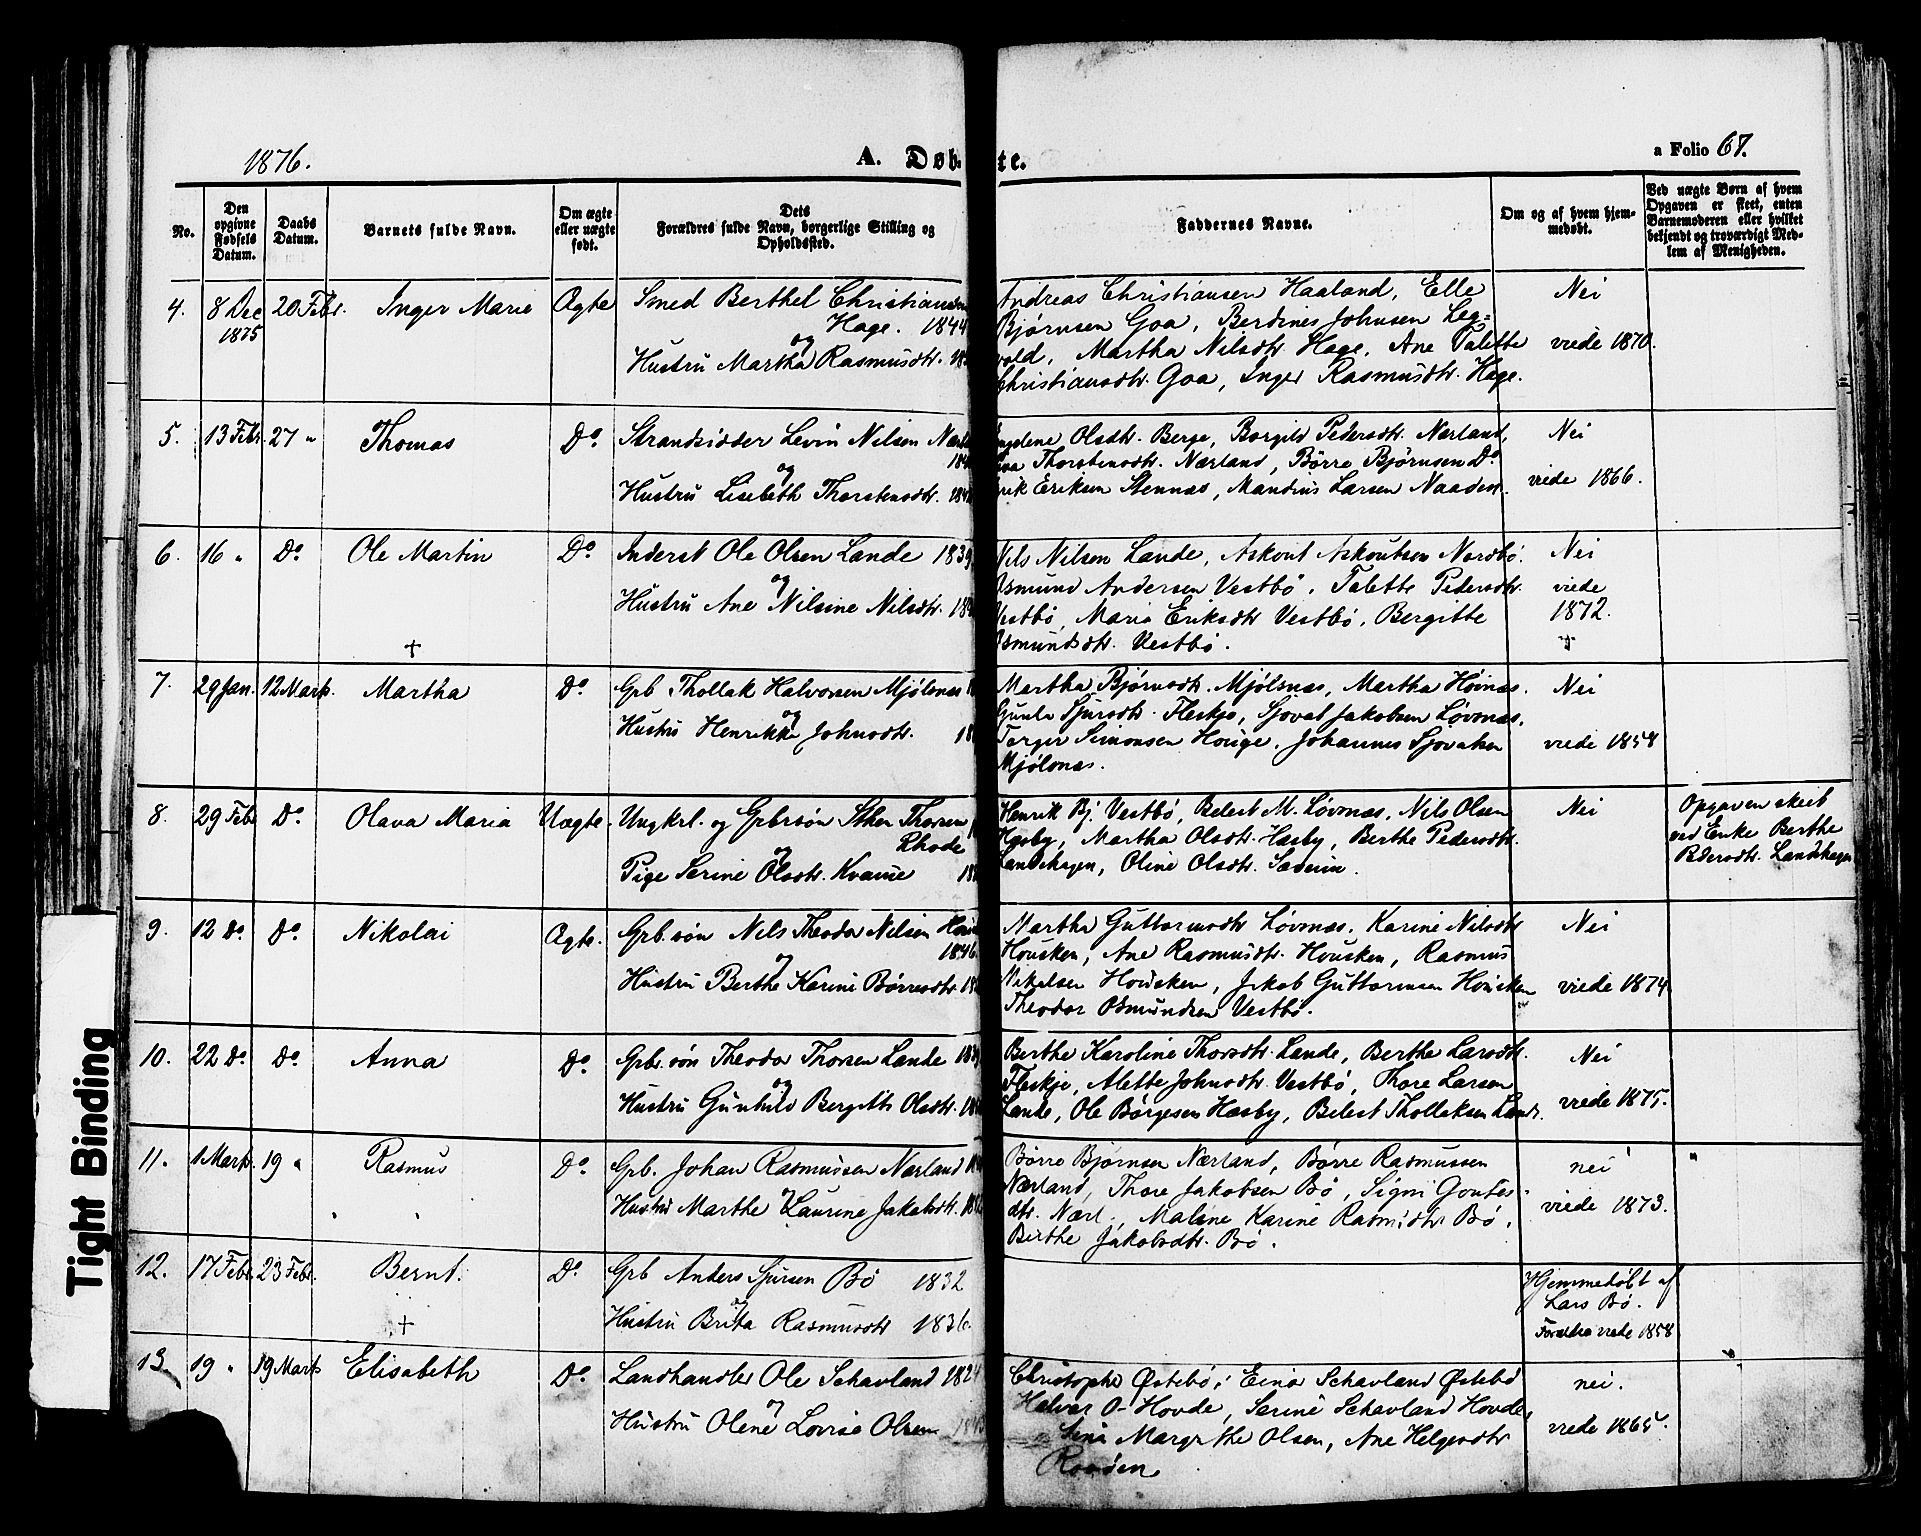 1876.
A. Døb-
te.
a Folio 67.
No.
Den opgivne Fødsels Datum.
Daabs Datum.
Barnets fulde Navn.
Om ægte eller uægte født.
Dets
Forældres fulde Navn, borgerlige Stilling og
Opholdssted.
Faddernes Navne.
Om og af hvem hjem-
medøbt.
Ved uægte Børn af hvem
Opgaven er skeet, enten
Barnemoderen eller hvilket
bekjendt og troværdigt Med-
lem af Menigheden.
4. 8 Dec 1875 20 Febr. Inger Marie Ægte
Smed Berthel Christiansen
Hage. 1844
og
Hustru Martha Rasmusdtr.
Andreas Christiansen Haaland, Elle
Bjørnsen Goa, Berdines Johnsen Leg-
vold, Martha Nilsdtr. Hage, Ane Talette
Christiansdtr. Goa, Inger Rasmusdtr. Hage.
Nei
viede 1870.
5. 13 Febr. 27 " Thomas Do
Strandsidder Levin Nilsen
og
Hustru Lisebeth Thorstensdtr.
Olsdtr. Berge, Borgild Pedersdtr. Nærland,
Thorstensdtr. Nærland, Börre Bjørnsen Do
Eriksen Stennæs, Mandius Larsen Naaden.
Nei
viede 1866.
6. 16 " Do Ole Martin Do
Inderst Ole Olsen Lande 1839
og
Hustru Ane Nilsine Nilsdtr.
+
Nils Nilsen Lande, Askout Askoutsen Nordbö.
Osmund Andersen Vestbö, Talette Pedersdtr.
Vestbö, Marie Eriksdtr Vestbö, Bergitte
Osmundsdtr. Vestbö.
Nei
viede
1872.
+
7. 29 Jan. 12 Marts. Martha Do
Grb Thollak Halvorsen Mjølsnæs
og
Hustru Henrikke Johnsdtr.
Martha Bjørnsdtr. Mjölsnæs, Martha Höinæs.
Gunla Sjursdtr. Fleskje, Sjovat Jakobsen Lövnæs,
Torger Simonsen Houge, Johannes Sjovatsen
Mjölsnæs.
Nei
viede 1858
8. 29 Febr Do Olava Maria Uægte.
Ungkrl. og Grbrsön Sther Thorsen
Rhode
og
Pige Serine Olsdtr. Kvame
Henrik Bj. Vestbö, Belest M. Lövnæs, Nils Olsen
Hæsby, Martha Olsdtr. Hæsby, Berthe Pedersdtr.
Landshagen, Oline Olsdtr.
Nei
Opgaven skeet
ved Enke Berthe
Pedersdtr. Landshagen
9. 12 Do Do Nikolai Ægte.
Grb.sön Nils Theodor Nilsen
1846.
og
Hustru Berthe Karine Börresdtr.
Martha Guttormsdtr Lövnæs, Karine Nilsdtr
Housken, Ane Rasmusdtr. Housken, Rasmus
Nikolsen Housken, Jakob Guttormsen Housken
Theodor Osmundsen Vestbö.
Nei
viede 1874.
10. 22 Do Do Anna Do
Grb.sön Theodor Thorsen Lande
og
Hustru Gunhild Bergitte Olsdtr.
Berthe Karoline Thorsdtr. Lande, Berthe Larsdtr.
Fleskje, Alette Johnsdtr. Vestbö, Thore Larsen
Lande, Ole Börgesen Hæsby, Belest Tholleksen Lande.
Nei
viede 1875.
11. 1 Marts. 19 " Rasmus Do
Grb. Johan Rasmussen Nærland
og
Hustru Marthe Laurine Jakobsdtr.
Börre Bjørnsen Nærland, Börre Rasmussen
Nærland, Thore Jakobsen Bö, Signi Gontes-
dtr. Nærl., Malene Karine Rasmsdtr Bö,
Berthe Jakobsdtr. Bö.
nei "
viede 1873.
12. 17 Febr. 23 Febr. Bernt. Do
+
Grb Anders Sjursen Bö 1832
og
Hustru Brita Rasmusdtr 1836.
Hjemmedöbt af
Lars Bö.
Forældre viede 1858
13. 19 " 19 Marts Elisabeth Do
Landhandler Ole Schavland 1824
og
Hustru Olene Lovise Olsen
Christophe Østebö, Einar Schavland Østebö
Halvar O- Hovde, Serine Schavland Hovde,
Sina Margrethe Olsen, Ane Helgesdtr
nei.
viede 1865.
Tight Binding